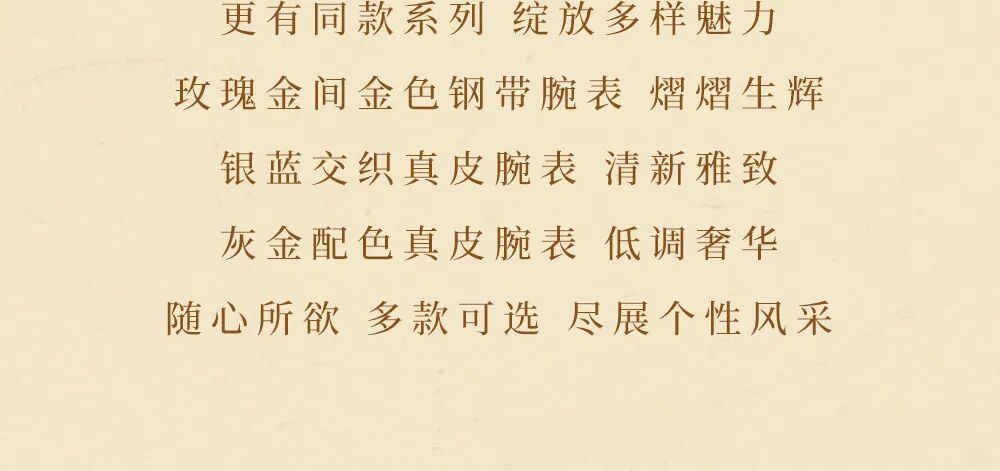 更有同款系列 绽放多样魅力
玫瑰金间金色钢带腕表 熠熠生辉
银蓝交织真皮腕表 清新雅致
灰金配色真皮腕表 低调奢华
随心所欲 多款可选 尽展个性风采